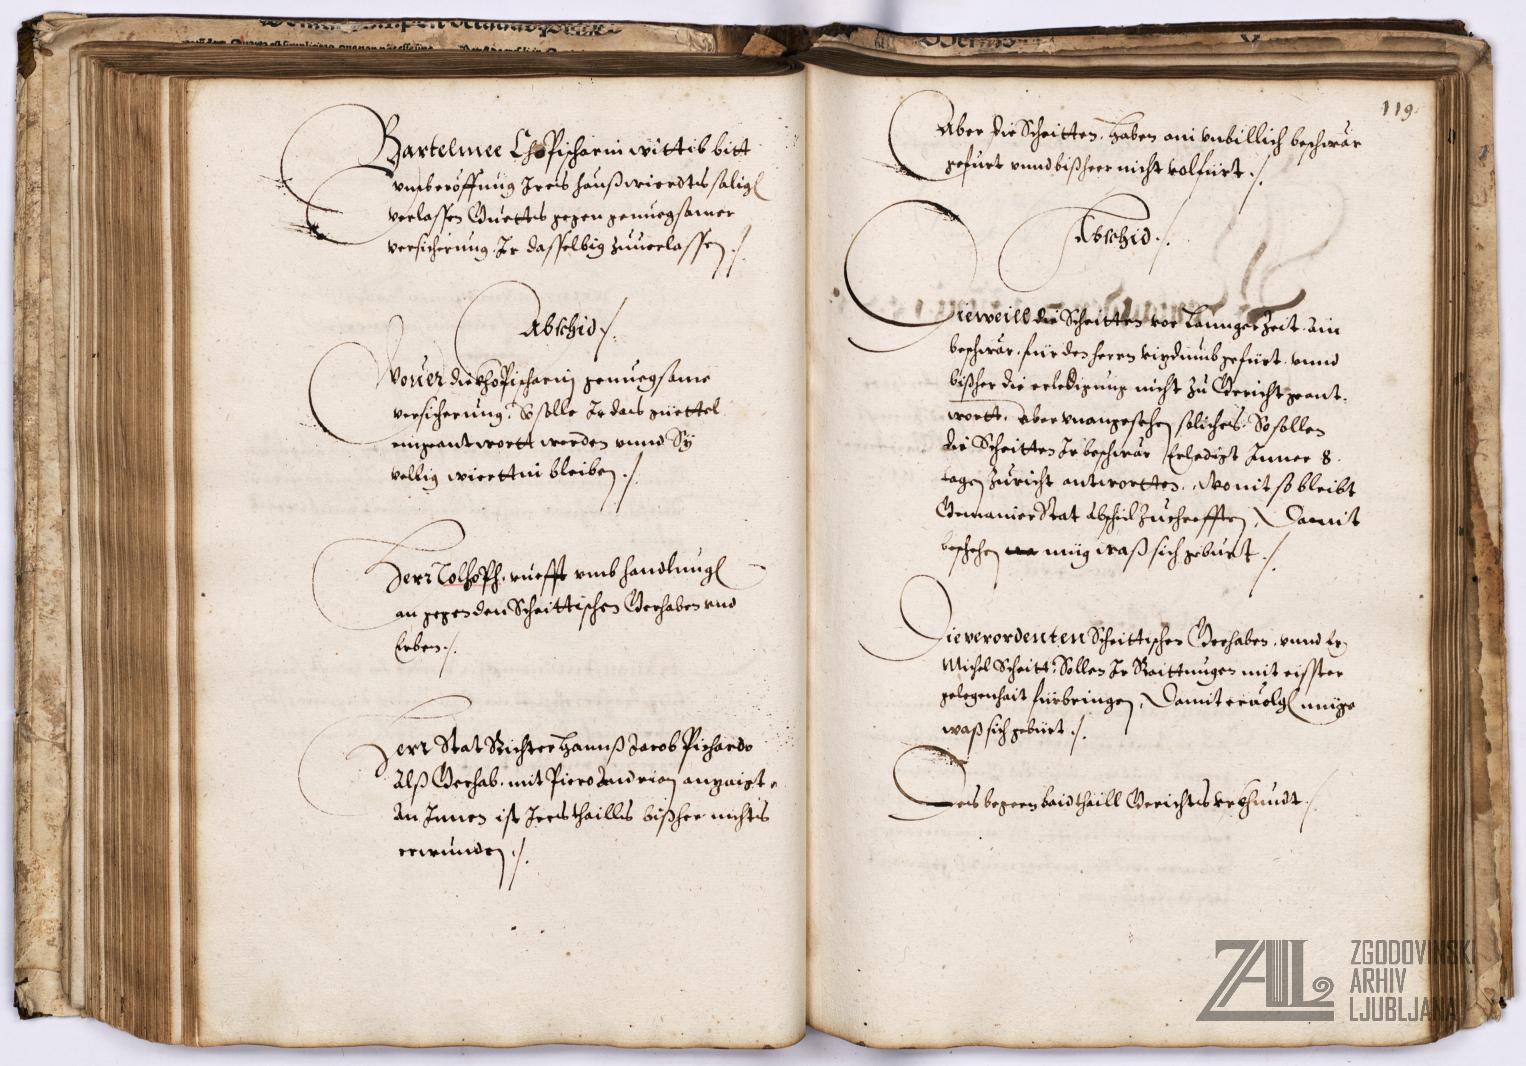 Bartelmee Chopischarin wittib bitt
umb eröffnung Ires haußwierdts salig
verlassen Guetts gegen genuegsamer
versicherung. Ir dasselbig zuuerlassen ./.
Abschid ./.
Wouer die khopischarin genuegsame
versicherung. So solle Ir das güettel
eingeantwort werden unnd Sy
vellig wierttin bleiben ./.
Herr Tolhopf. ruefft umb handlung
an gegen den Scheittischen Gerhaben und
Erben ./.
Herr Stat Richter Hannß Jacob
Alß Gerhab. mit Piero Andrian anzaigt
An Innen ist Ires thaills bißher nichts
erwunden ./.
119.
Aber die Scheitten. haben ain unbillich beschwär
gefürt unnd bißheer nicht volfürt ./.
Abschid ./.
Dieweill die Scheitten vor lannger Zeit ain
beschwär. für den herrn vizdumb gefürt. unnd
bißher die erledigung nicht zu Gericht geant-
wortt. Aber unangesehen soliches. So sollen
die Scheitten Ir beschwär Erledigt Inner 8
tagen zuricht antwortten. Wo nit so bleibt
Stat Abschid zu crefften. Damit
beschehen müg waß sich gebürt ./.
Die verordenten Scheittischen Gerhaben. unnd Er
Michel Scheitt. Sollen Ir Raittungen mit eisster
gelegenhait fürbringen. Damit eruolg müge
waß sich gebürt ./.
Des begern baid thaill Gerichts Urkhundt ./.
ZAL
ZGODOVINSKI
ARHIV
LJUBLJANA